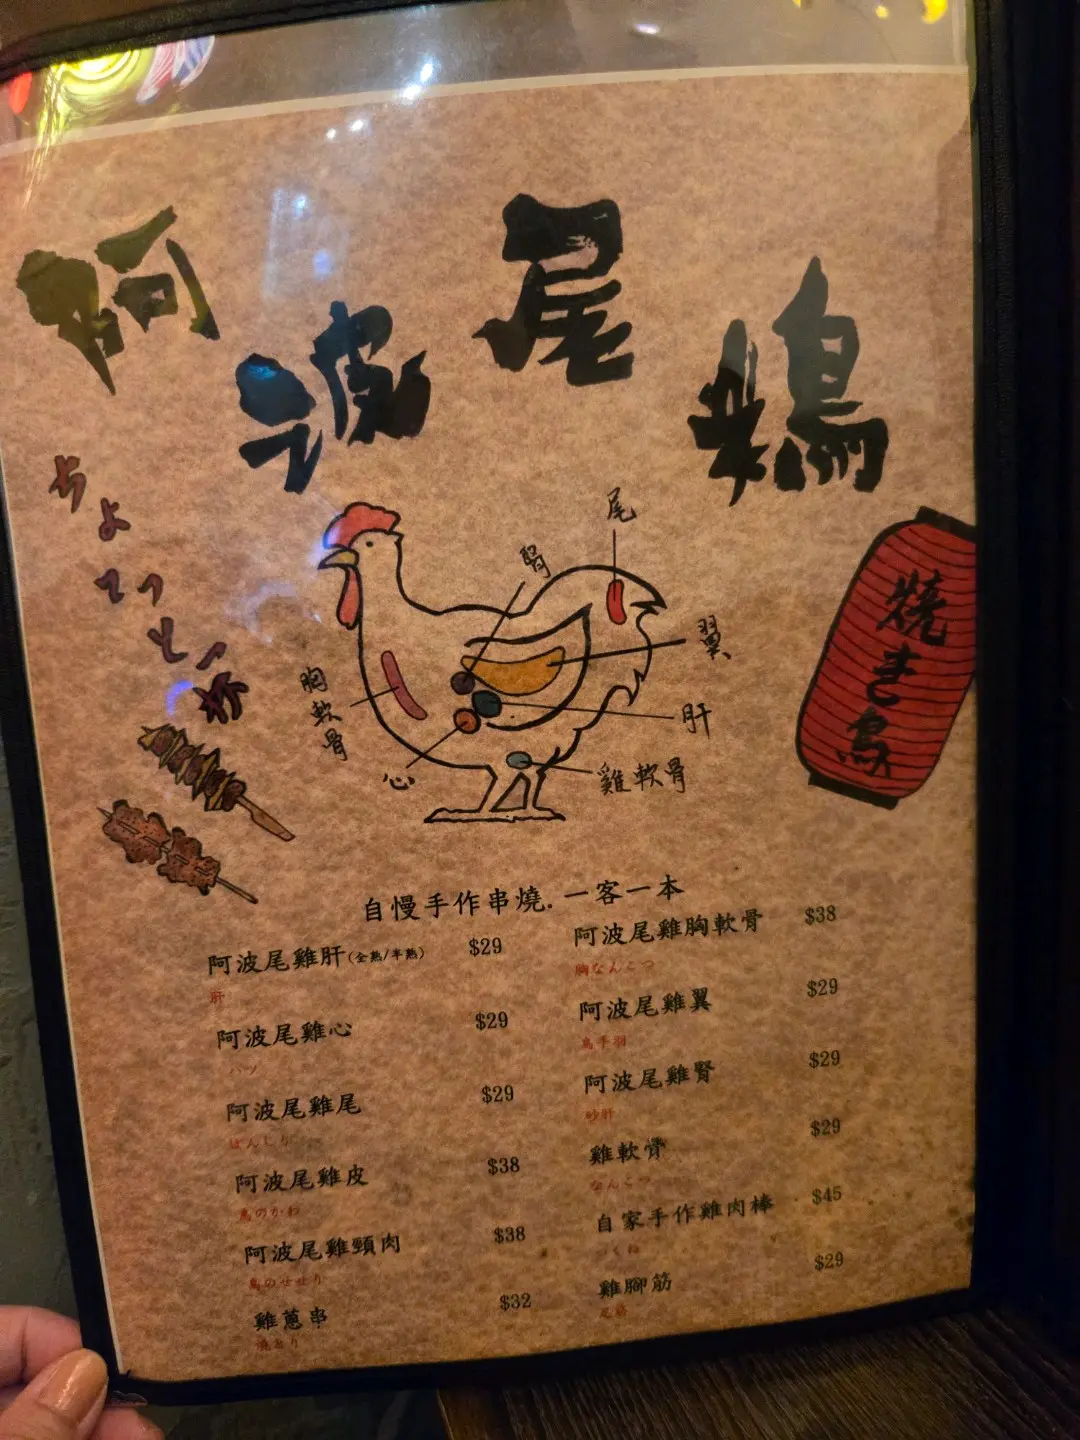 阿波尾鶏
ちょっと
焼き鳥
尾
腎
翼
胸軟骨
肝
心
雞軟骨
自慢手作串燒.一客一本
阿波尾雞肝(全熟/半熟) $29
肝
阿波尾雞心 $29
ハツ
阿波尾雞尾 $29
ぼんじり
阿波尾雞皮 $38
鳥のかわ
阿波尾雞頸肉 $38
鳥のせせり
雞蔥串 $32
阿波尾雞胸軟骨 $38
胸なんこつ
阿波尾雞翼 $29
鳥手羽
阿波尾雞腎 $29
砂肝
雞軟骨 $29
なんこつ
自家手作雞肉棒 $45
つくね
雞腳筋 $29